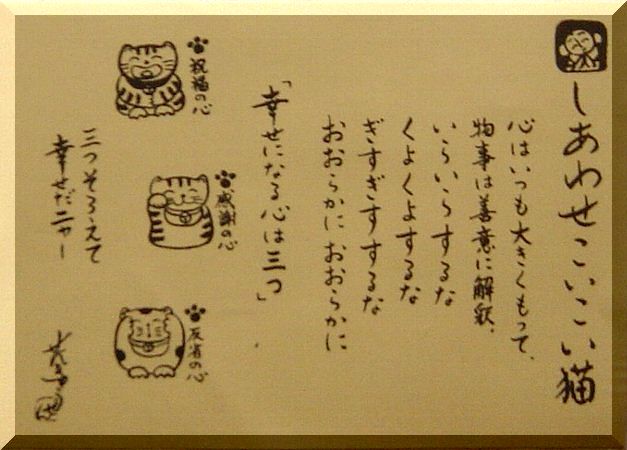 しあわせこいこい猫
心はいつも大きくもって、
物事は善意に解釈、
いらいらするな
くよくよするな
ぎすぎすするな
おおらかにおおらかに
「幸せになる心は三つ」
祝福の心
感謝の心
反省の心
三つそろえて
幸せだニャー